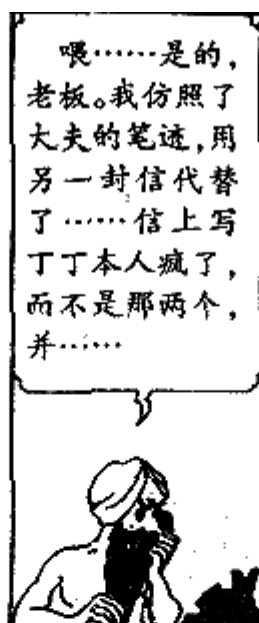 喂……是的，
老板。我仿照了
大夫的笔迹，用
另一封信代替
了……信上写
丁丁本人疯了，
而不是那两个，
并……